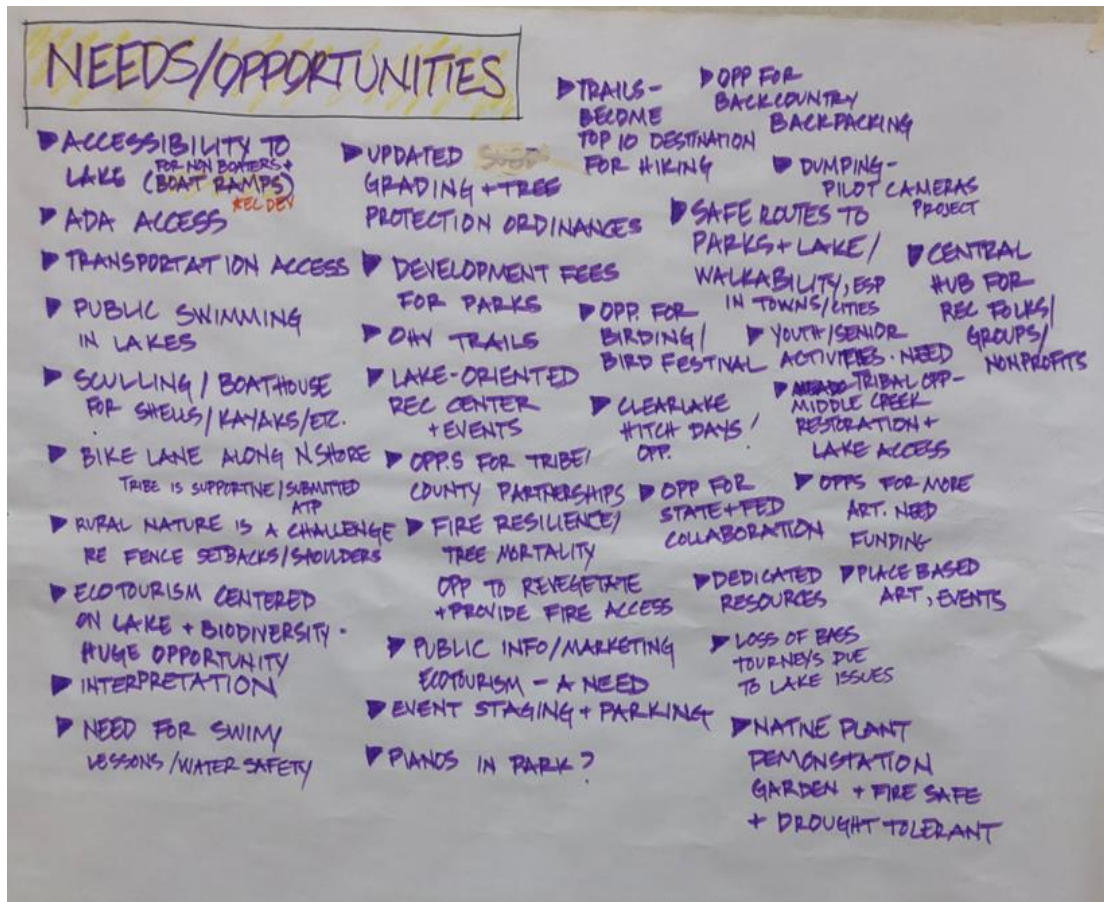 NEEDS/OPPORTUNITIES
▶ACCESSIBILITY TO
LAKE (FOR NON BOATERS+
BOAT RAMPS)
REC DEV
▶ADA ACCESS
▶TRANSPORTATION ACCESS
▶PUBLIC SWIMMING
IN LAKES
▶SCULLING/BOATHOUSE
FOR SHELLS/KAYAKS/ETC.
▶BIKE LANE ALONG N SHORE
TRIBE IS SUPPORTIVE/SUBMITTED
ATP
▶RURAL NATURE IS A CHALLENGE
RE FENCE SETBACKS/SHOULDERS
▶ECOTOURISM CENTERED
ON LAKE + BIODIVERSITY -
HUGE OPPORTUNITY
▶INTERPRETATION
▶NEED FOR SWIM
LESSONS/WATER SAFETY
▶UPDATED
GRADING + TREE
PROTECTION ORDINANCES
▶DEVELOPMENT FEES
FOR PARKS
▶OHV TRAILS
▶LAKE-ORIENTED
REC CENTER
+ EVENTS
▶OPP.S FOR TRIBE/
COUNTY PARTNERSHIPS
▶FIRE RESILIENCE/
TREE MORTALITY
OPP TO REVEGETATE
+ PROVIDE FIRE ACCESS
▶PUBLIC INFO/MARKETING
ECOTOURISM - A NEED
▶EVENT STAGING + PARKING
▶PIANOS IN PARK?
▶TRAILS-
BECOME
TOP 10 DESTINATION
FOR HIKING
▶OPP FOR
BACKCOUNTRY
BACKPACKING
▶DUMPING-
PILOT CAMERAS
PROJECT
▶SAFE ROUTES TO
PARKS + LAKE/
WALKABILITY, ESP
IN TOWNS/CITIES
▶CENTRAL
HUB FOR
REC FOLKS/
GROUPS/
NONPROFITS
▶OPP. FOR
BIRDING/
BIRD FESTIVAL
▶YOUTH/SENIOR
ACTIVITIES - NEED
▶CLEARLAKE
HITCH DAYS!
OPP.
▶TRIBAL OPP-
MIDDLE CREEK
RESTORATION +
LAKE ACCESS
▶OPP FOR
STATE + FED
COLLABORATION
▶OPPS FOR MORE
ART. NEED
FUNDING
▶DEDICATED
RESOURCES
▶PLACE BASED
ART, EVENTS
▶LOSS OF BASS
TOURNEYS DUE
TO LAKE ISSUES
▶NATIVE PLANT
DEMONSTATION
GARDEN + FIRE SAFE
+ DROUGHT TOLERANT